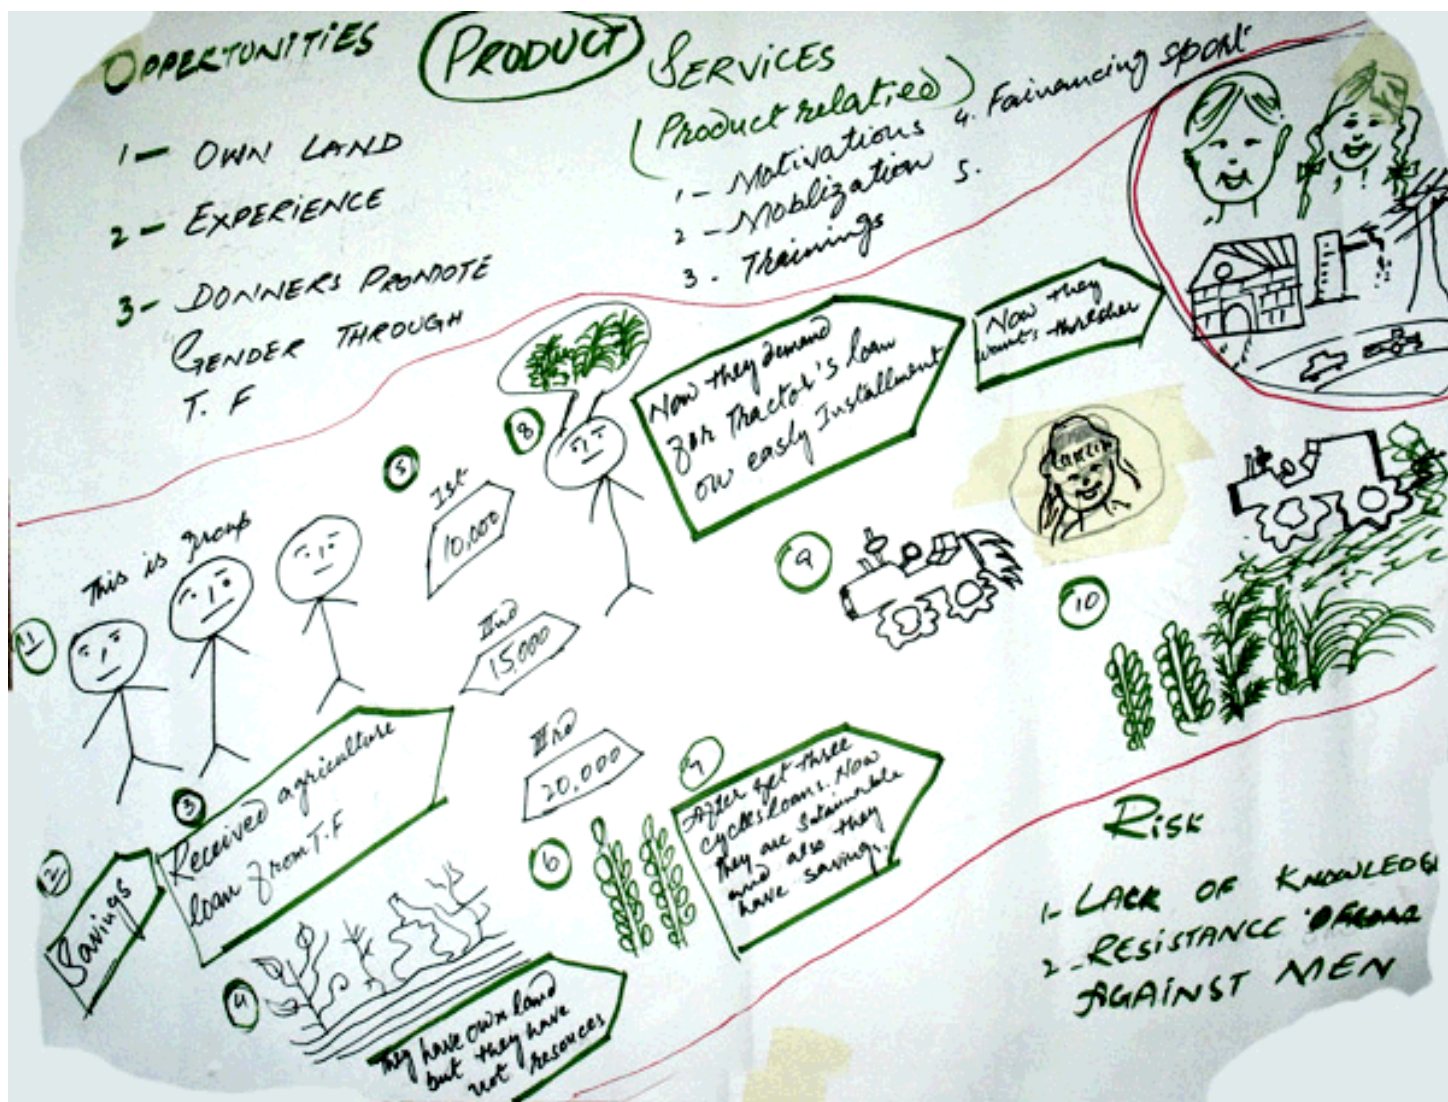 OPPERTUNITIES
1- OWN LAND
2- EXPERIENCE
3- DONNERS PROMOTE
GENDER THROUGH
T. F
PRODUCT
SERVICES
(Product related)
1- Motivations
2- Moblization
3. Trainings
4. Fainancing sport
5.
1
This is group
2
Savings
3
Received agriculture
loan from T.F
4
They have own land
but they have
not resouces
5
Ist
10,000
IInd
15,000
IIIrd
20,000
6
7
After get three
cycles loans. Now
they are
and also they
have savings.
8
Now they demand
for Tractor's loan
on easly Installment
9
Now they
wants thresher
10
RISK
1- LACK OF KNOWLEDG
2- RESISTANCE
AGAINST MEN